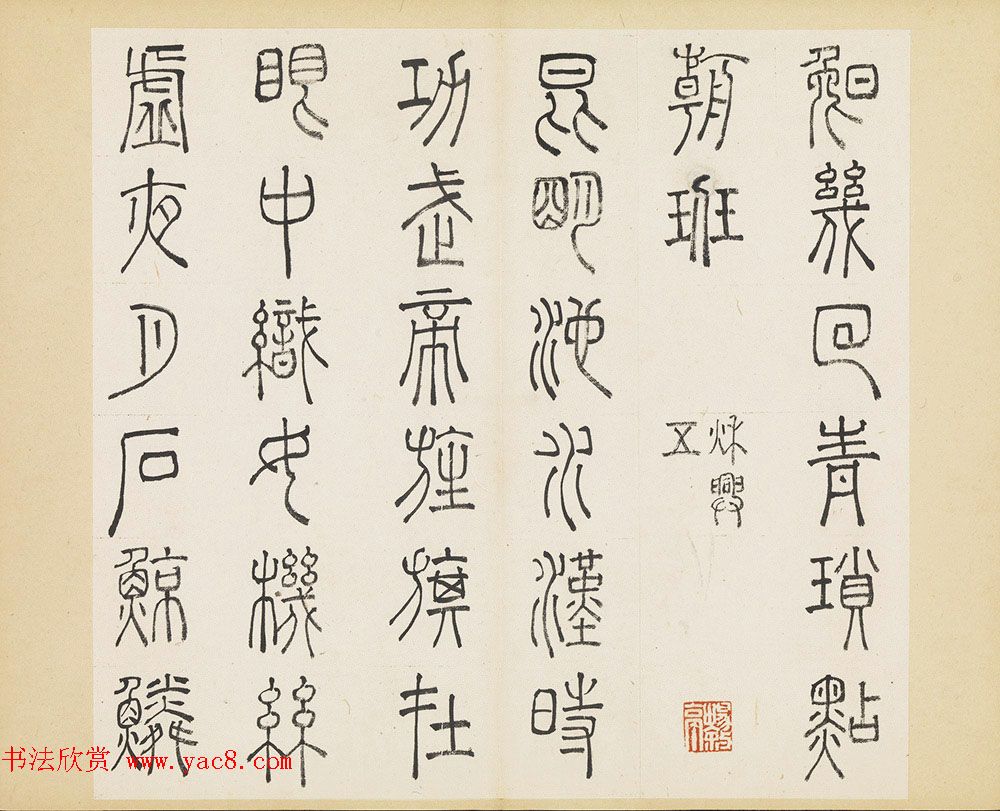 晚幾回青瑣點
朝班
秋興
五
昆明池水漢時
功武帝旌旗在
眼中織女機絲
虛夜月石鯨鱗
书法欣赏 www.yac8.com